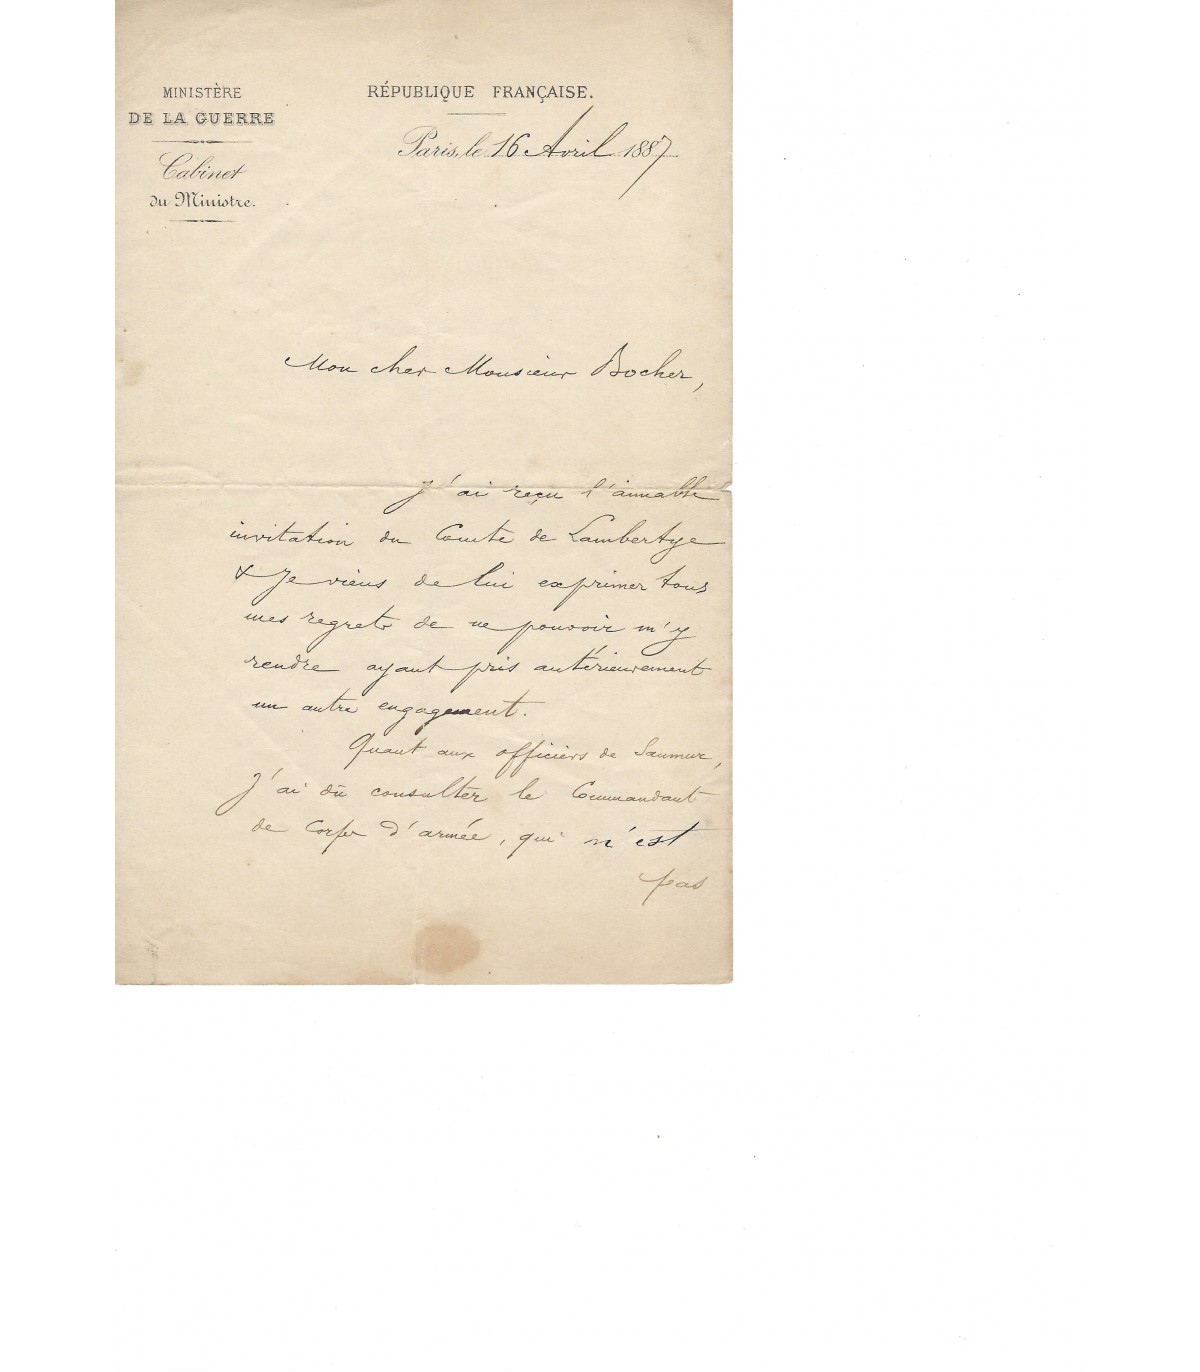 MINISTÈRE
DE LA GUERRE
Cabinet
du Ministre.
RÉPUBLIQUE FRANÇAISE.
Paris, le 16 Avril 1887
Mon cher Monsieur Bocher,
J'ai reçu l'aimable
invitation du Comte de Lambertye
& je viens de lui exprimer tous
mes regrets de ne pouvoir m'y
rendre ayant pris antérieurement
un autre engagement.
Quant aux officiers de Saumur,
J'ai dû consulter le Commandant
de Corps d'armée, qui n'est
pas